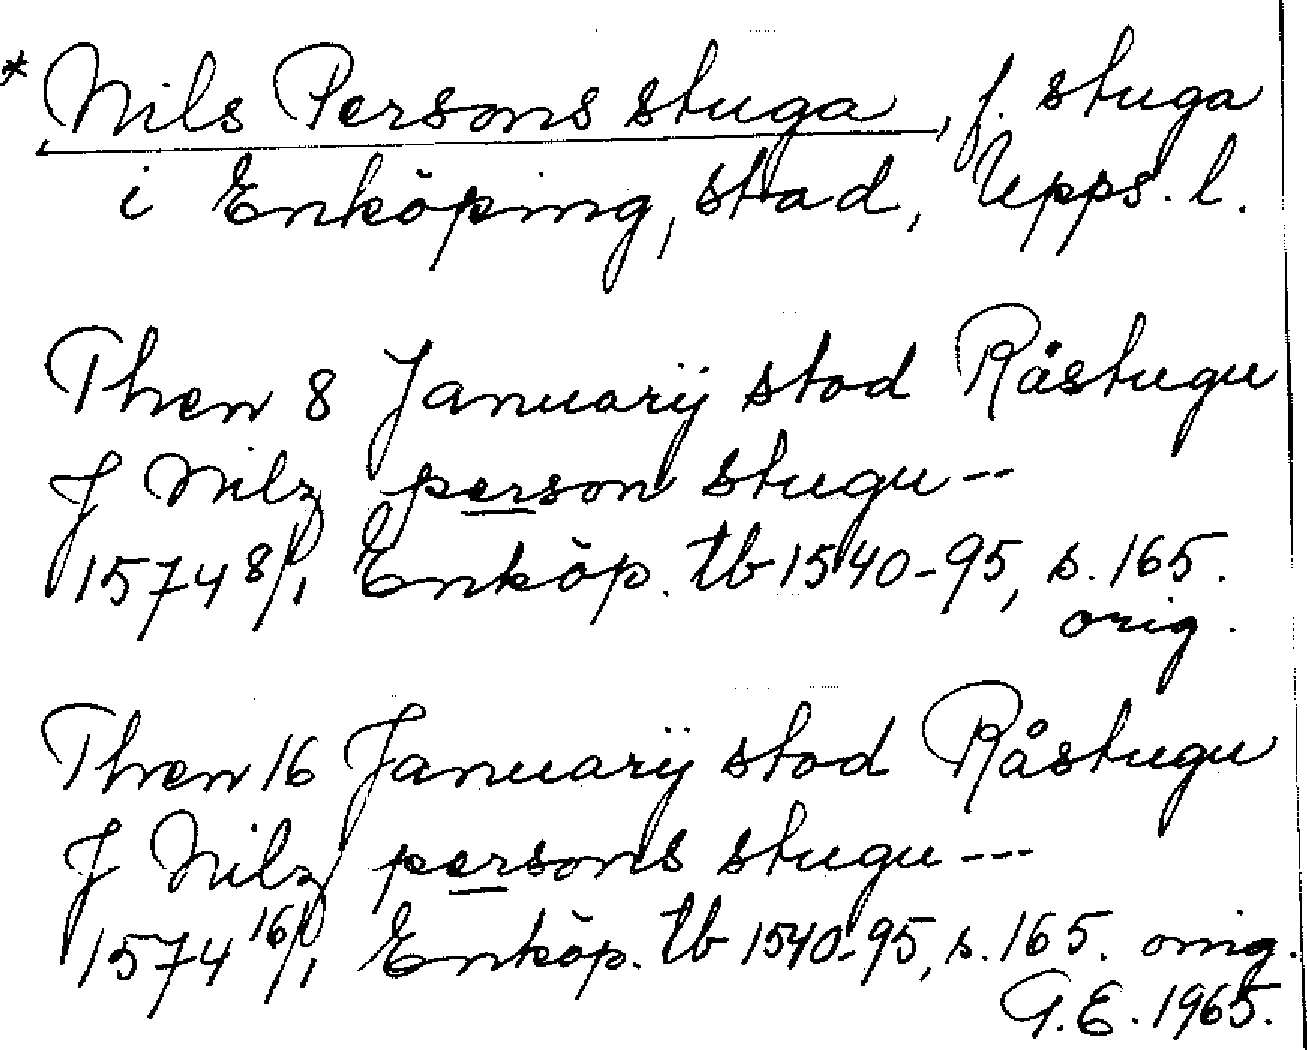 * Nils Persons stuga, f. stuga
i Enköping, stad, Upps. l.
Then 8 Januarij stod Råstugu
J Nilz person stugu--
1574 8/1, Enköp. tb 1540-95, s. 165.
orig.
Then 16 Januarij stod Råstugu
J Nilz persons stugu---
1574 16/1, Enköp. tb 1540-95, s. 165. orig.
G.E. 1965.